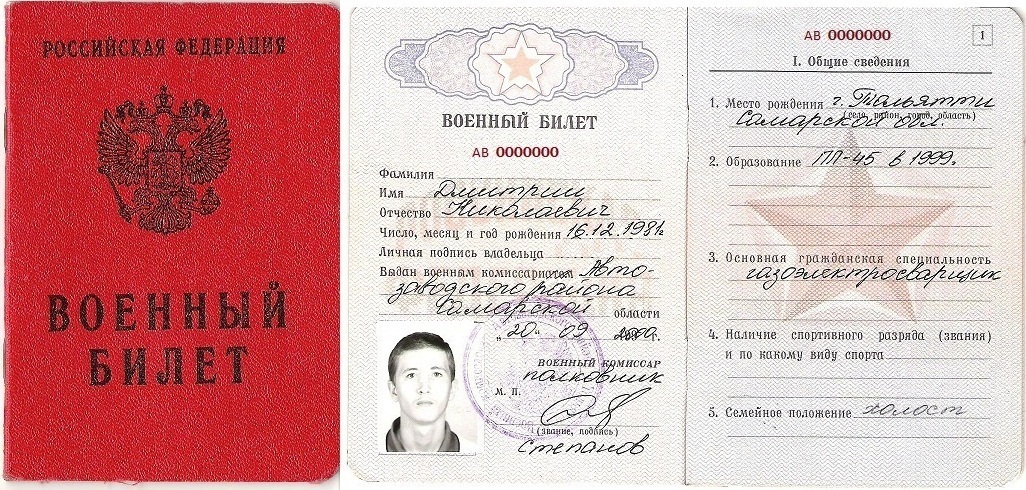 РОССИЙСКАЯ ФЕДЕРАЦИЯ
ВОЕННЫЙ
БИЛЕТ
ВОЕННЫЙ БИЛЕТ
АВ 0000000
Фамилия
Имя Дмитрий
Отчество Николаевич
Число, месяц и год рождения 16.12.1981г
Личная подпись владельца
Выдан военным комиссариатом Авто-
заводского района
Самарской области
„20“ 09 2000 г.
ВОЕННЫЙ КОМИССАР
полковник
М. П.
(звание, подпись)
Степанов
АВ 0000000
1
I. Общие сведения
1. Место рождения г. Тольятти
(село, район, город, область)
Самарской обл.
2. Образование ПЛ-45 в 1999г.
3. Основная гражданская специальность
газоэлектросварщик
4. Наличие спортивного разряда (звания)
и по какому виду спорта
5. Семейное положение холост